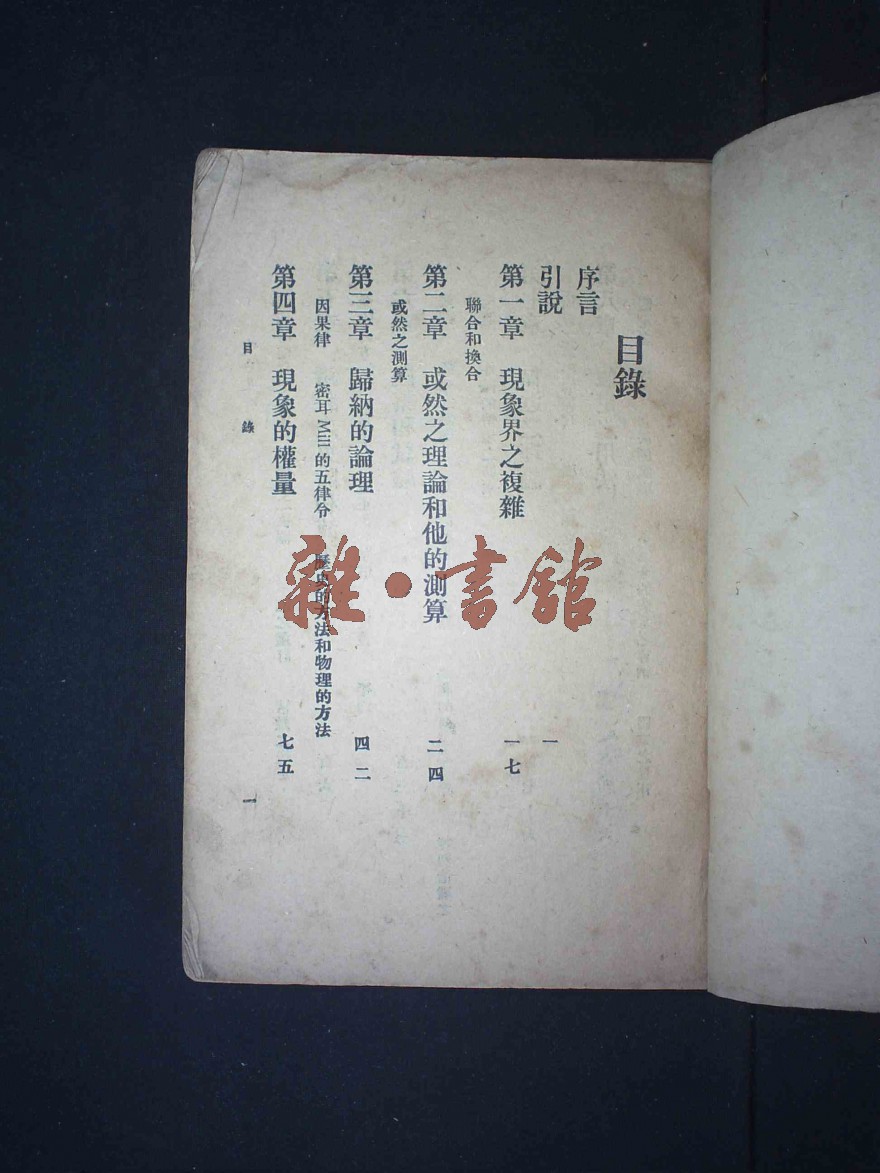 目錄
序言
引說 一
第一章 現象界之複雜 一七
聯合和換合
第二章 或然之理論和他的測算 二四
或然之測算
第三章 歸納的論理 四二
因果律 密耳 Mill 的五律令 歷史的方法和物理的方法
第四章 現象的權量 七五
目 錄 一
雜·書館